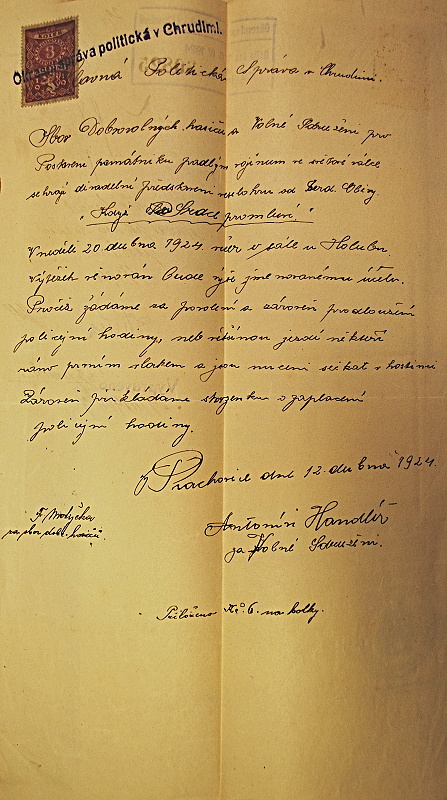 Okresní správa politická v Chrudimi.
Slavná Politická Správa v Chrudimi.
Sbor Dobrovolných hasičů a Volné Sdružení pro
Postavení pomníku padlým vojínům ve světové válce
sehrají divadelní představení veselohru od Ferd. Olivy
"Když Srdce promluví."
V neděli 20. dubna 1924. v sále u Holubů.
Výtěžek věnován bude výše jmenovanému účelu.
Pročež žádáme za povolení a zároveň prodloužení
policejní hodiny, neb většinou jezdí někteří
ráno prvním vlakem a jsou nuceni čekat v hostinci
Zároveň přikládáme stvrzenku o zaplacení
policejní hodiny.
V Prachovice dne 12. dubna 1924.
F. Motyčka
za sbor dobr. hasičů
Antonín Handlíř
za Volné Sdružení.
Přiloženo Kč 6. na kolky.